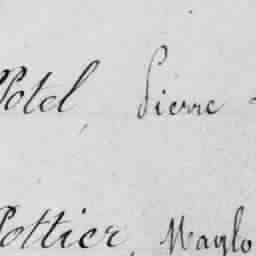 Potel, Pierre
Pottier, Maglo